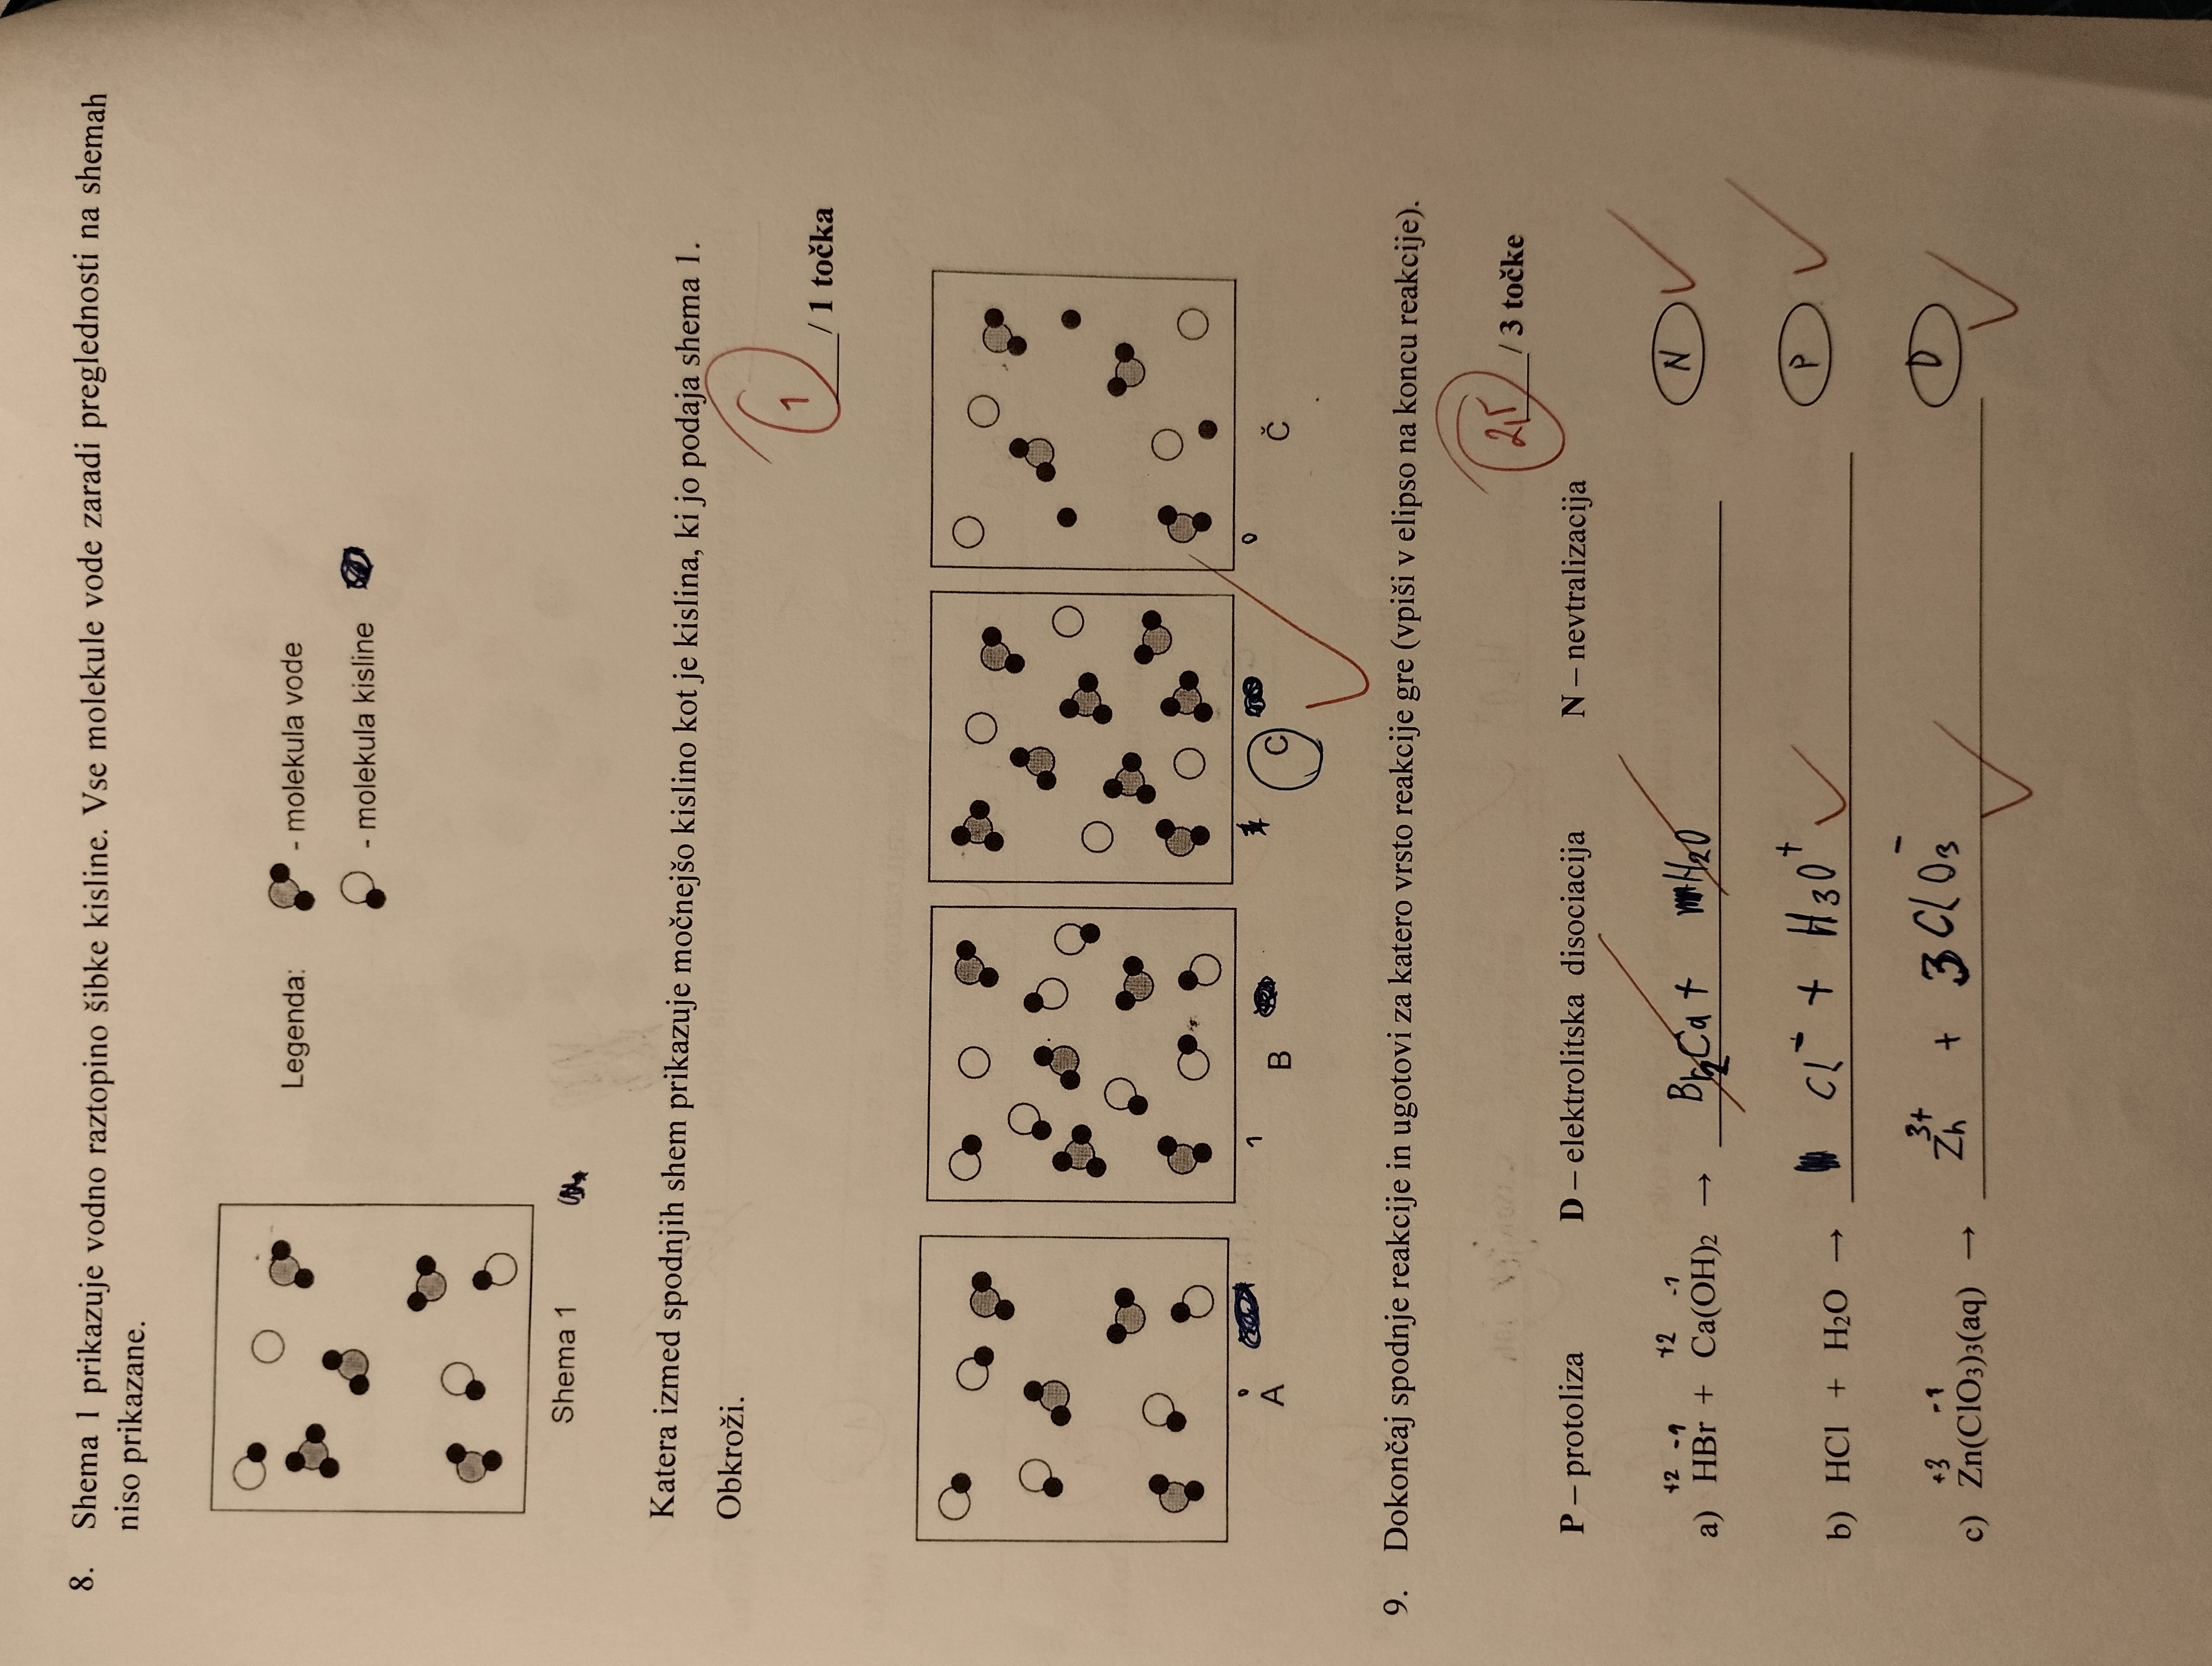 8. Shema 1 prikazuje vodno raztopino šibke kisline. Vse molekule vode zaradi preglednosti na shemah
niso prikazane.
Legenda: - molekula vode
- molekula kisline
Shema 1
Katera izmed spodnjih shem prikazuje močnejšo kislino kot je kislina, ki jo podaja shema 1.
Obkroži.
1
/ 1 točka
0 1 0
A B C Č
9. Dokončaj spodnje reakcije in ugotovi za katero vrsto reakcije gre (vpiši v elipso na koncu reakcije).
2,5 / 3 točke
P – protoliza D – elektrolitska disociacija N – nevtralizacija
+2 -1 +2 -1
a) HBr + Ca(OH)2 → Br2Ca + H2O N
b) HCl + H2O → Cl⁻ + H3O⁺ P
+3 -1
c) Zn(ClO3)3(aq) → Zn³⁺ + 3ClO3⁻ D